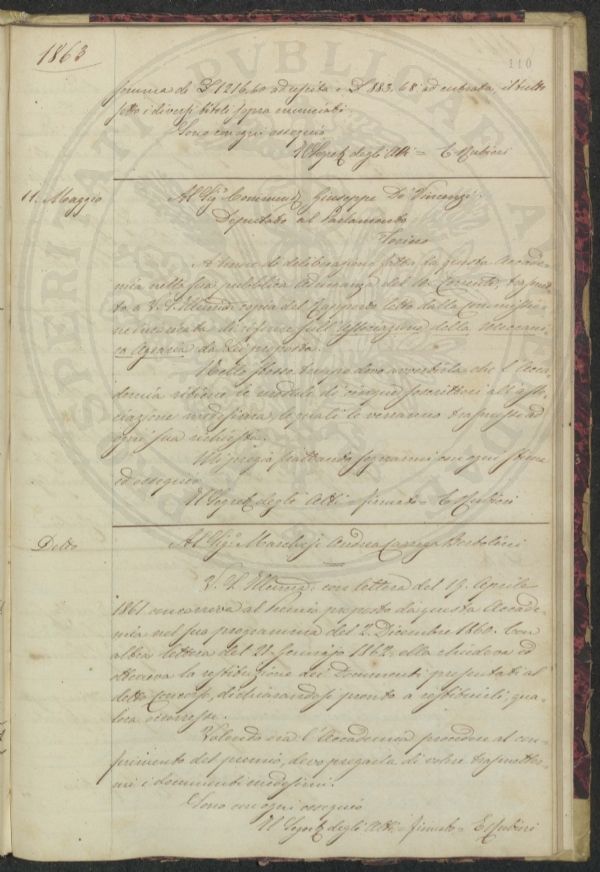 1863
110
somma di £ 1216,60 ad uscita e £ 883,68 ad entrata, il tutto
sotto i diversi titoli sopra enunciati.
Sono con ogni ossequio
Il Segret. degli Atti = C. Rubieri
11. Maggio
Al Sig.r Commend. Giuseppe De Vincenzi
Deputato al Parlamento
Torino
A tenore di deliberazione fatta da questa Accade-
mia nella sua pubblica Adunanza del corrente, trasmet-
to a V. S. Illma. copia del Rapporto letto dalla Commissio-
ne incaricata di riferire sull'Associazione della Meccani-
ca Agraria da Lei proposta.
Nello stesso tempo devo avvertirla che l'Acca-
demia ritiene le module di cinque soscrittori all'Asso-
ciazione medesima, le quali le verranno trasmesse ad
ogni sua richiesta.
Mi pregio frattanto segnarmi con ogni stima
ed ossequio
Il Segret. degli Atti = firmato = C. Rubieri
Detto
Al Sig.r Marchese Andrea Carrega Bertolini
V. S. Illma. con lettera del 19. Aprile
1861. concorreva al Premio proposto da questa Accade-
mia nel suo programma del 2. Dicembre 1860. Con
altra lettera del 21. Gennajo 1862. ella chiedeva ed
otteneva la restituzione dei documenti presentati al
detto Concorso, dichiarandosi pronto a restituirli, qua-
lora occorresse.
Volendo ora l'Accademia procedere al con-
ferimento del premio, devo pregarla di volere trasmetter-
mi i documenti medesimi.
Sono con ogni ossequio
Il Segret. degli Atti = firmato = C. Rubieri